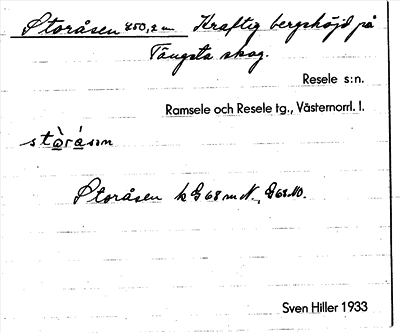 Storåsen 450,2 m Kraftig bergshöjd på
Tängsta skog.
Resele s:n.
Ramsele och Resele tg., Västernorrl. l.
stò̱rá̱sən
Storåsen k G 68 m N., G 68 NO.
Sven Hiller 1933